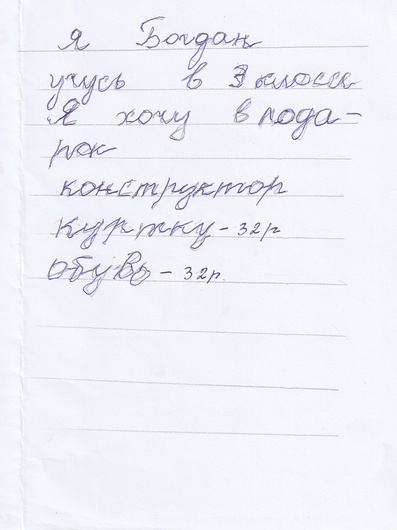 Я Богдан
учусь в 3 класси
Я хочу в пода-
рок
конструктор
куртку - 32 р
обувь - 32 р.